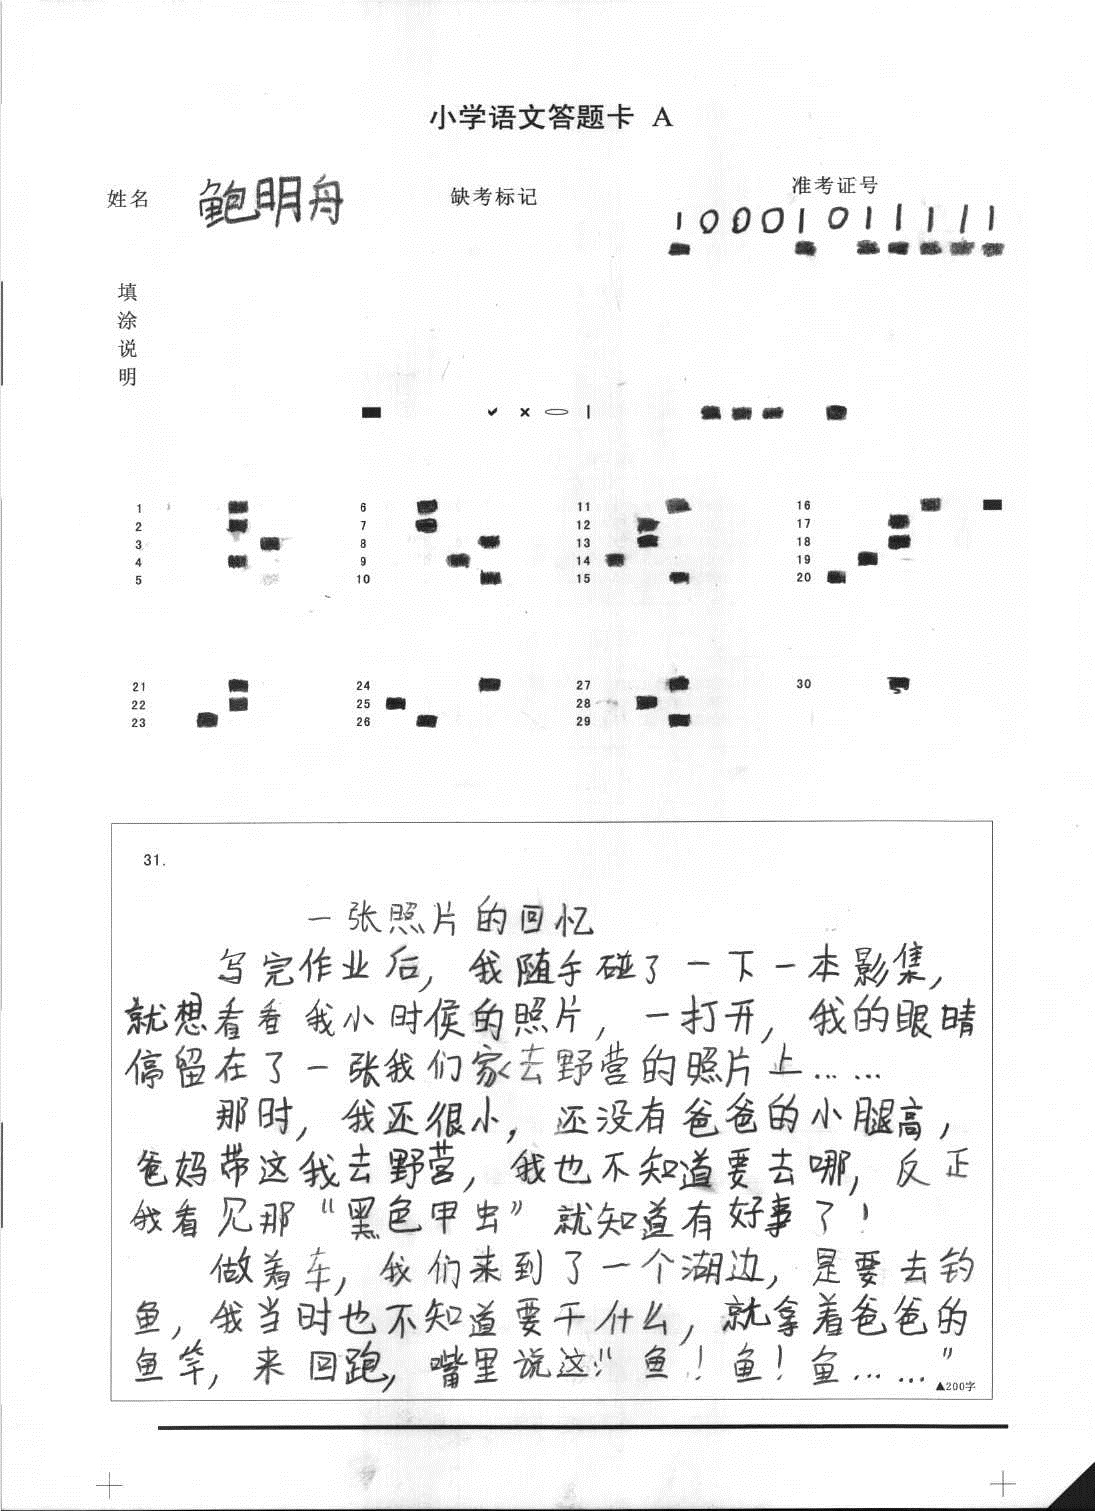 小学语文答题卡 A
姓名 鲍明舟 缺考标记 准考证号
10001011111
填涂说明
1 6 11 16
2 7 12 17
3 8 13 18
4 9 14 19
5 10 15 20
21 24 27 30
22 25 28
23 26 29
31.
一张照片的回忆
写完作业后，我随手碰了一下一本影集，
就想看看我小时候的照片，一打开，我的眼睛
停留在了一张我们家去野营的照片上……
那时，我还很小，还没有爸爸的小腿高，
爸妈带这我去野营，我也不知道要去哪，反正
我看见那“黑色甲虫”就知道有好事了！
做着车，我们来到了一个湖边，是要去钓
鱼，我当时也不知道要干什么，就拿着爸爸的
鱼竿，来回跑，嘴里说这：“鱼！鱼！鱼……”
▲200字